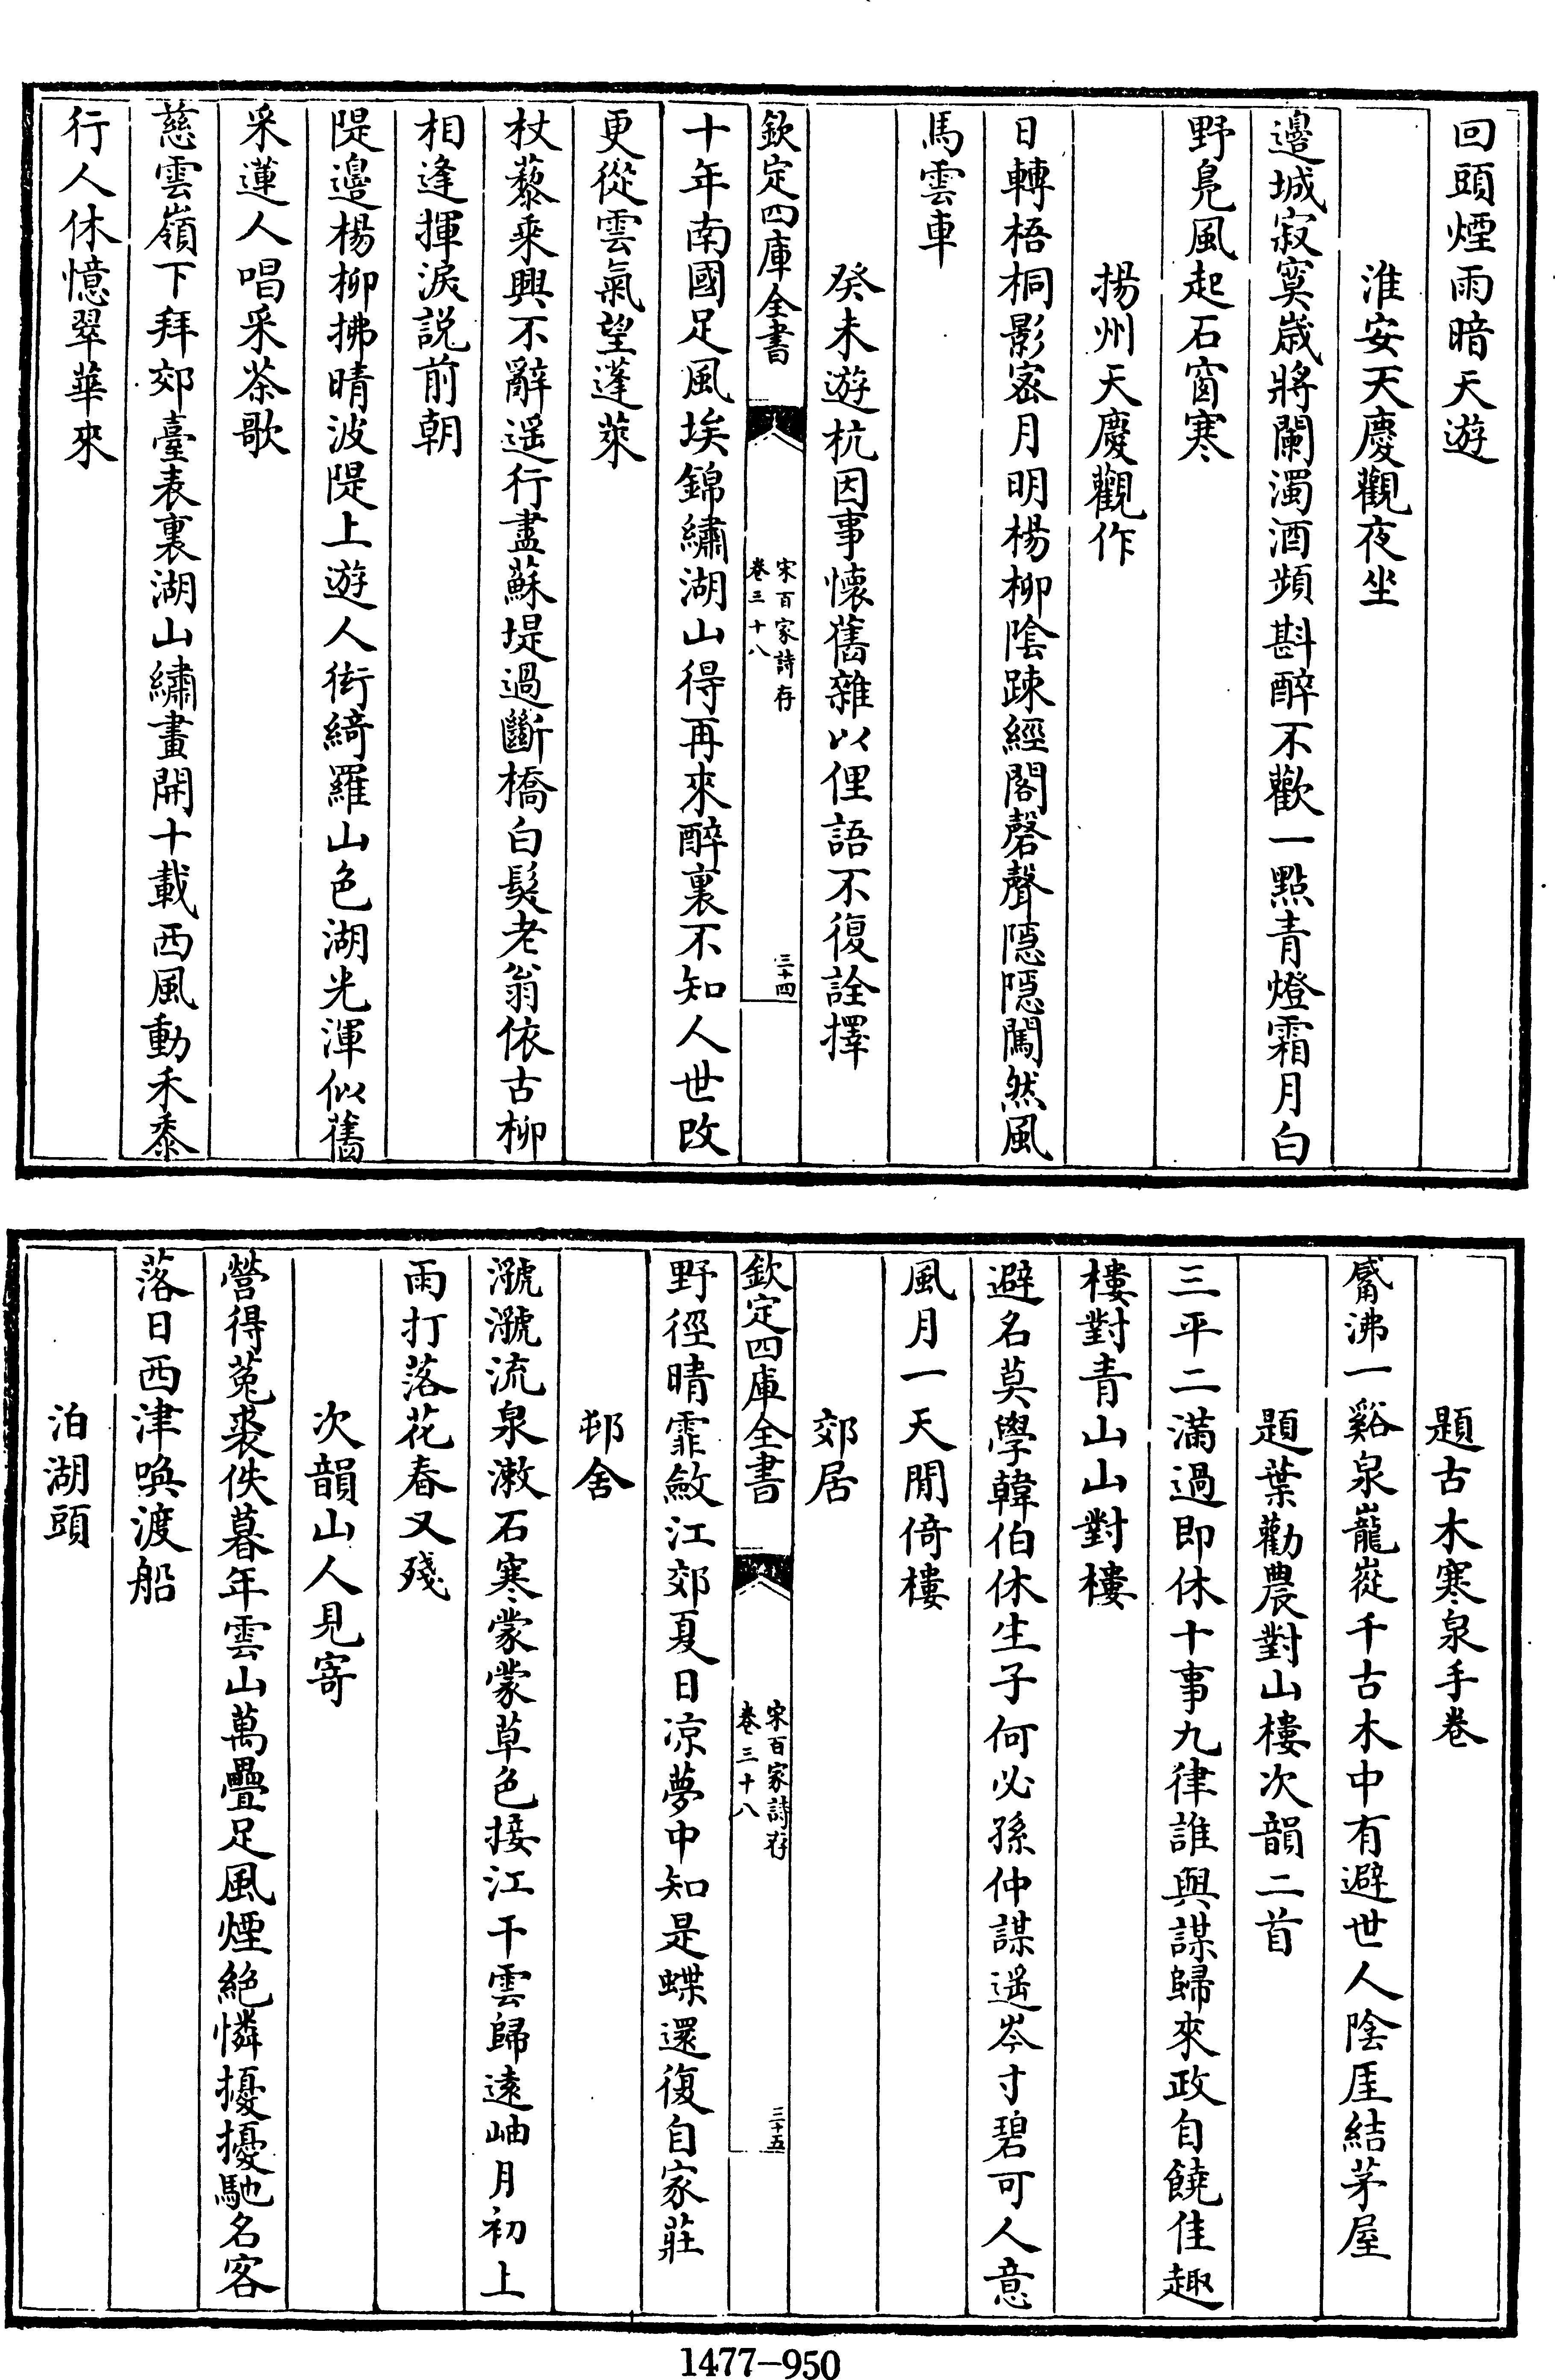 回頭煙雨暗天遊
淮安天慶觀夜坐
邊城寂寞歲將闌濁酒頻斟醉不歡一點青燈霜月白
野鳬風起石窗寒
揚州天慶觀作
日轉梧桐影宻月明楊柳陰踈經閣磬聲隱隱闖然風
馬雲車
癸未遊杭因事懷舊雜以俚語不復詮擇
欽定四庫全書
宋百家詩存
卷三十八
三十四
十年南國足風埃錦繡湖山得再來醉裏不知人世改
更從雲氣望蓬萊
杖藜乘興不辭遥行盡蘇堤過斷橋白髮老翁依古柳
相逢揮淚説前朝
隄邊楊柳拂晴波隄上遊人衒綺羅山色湖光渾似舊
采蓮人唱采茶歌
慈雲嶺下拜郊臺表裏湖山繡畫開十載西風動禾黍
行人休憶翠華來
題古木寒泉手卷
觱沸一谿泉巃嵸千古木中有避世人陰厓結茅屋
題葉勸農對山樓次韻二首
三平二滿過即休十事九律誰與謀歸來政自饒佳趣
樓對青山山對樓
避名莫學韓伯休生子何必孫仲謀遥岑寸碧可人意
風月一天閒倚樓
郊居
欽定四庫全書
宋百家詩存
卷三十八
三十五
野徑晴霏斂江郊夏日凉夢中知是蝶還復自家莊
邨舍
㶁㶁流泉漱石寒蒙蒙草色接江干雲歸遠岫月初上
雨打落花春又殘
次韻山人見寄
營得菟裘佚暮年雲山萬疊足風煙絶憐擾擾馳名客
落日西津喚渡船
泊湖頭
1477-950